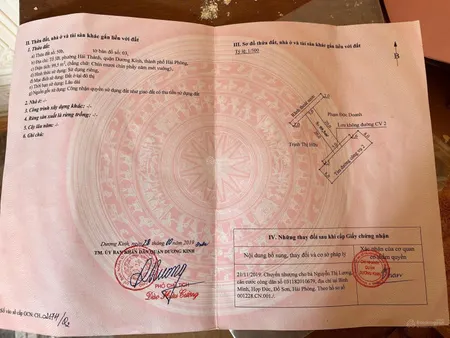 II. Thửa đất, nhà ở và tài sản khác gắn liền với đất
1. Thửa đất:
a) Thửa đất số: , tờ bản đồ số: 03,
b) Địa chỉ: Tổ 3B, phường Hải Thành, quận Dương Kinh, thành phố Hải Phòng,
c) Diện tích: 99,5 m², (bằng chữ: Chín mươi chín phẩy năm mét vuông),
d) Hình thức sử dụng: Sử dụng riêng,
đ) Mục đích sử dụng: Đất ở tại đô thị
e) Thời hạn sử dụng: Lâu dài
g) Nguồn gốc sử dụng: Công nhận quyền sử dụng đất như giao đất có thu tiền sử dụng đất
2. Nhà ở: -/-
3. Công trình xây dựng khác: -/-
4. Rừng sản xuất là rừng trồng: -/-
5. Cây lâu năm: -/-
6. Ghi chú:
Dương Kinh, ngày 28 tháng 10 năm 2019
TM. ỦY BAN NHÂN DÂN QUẬN DƯƠNG KINH
PHÓ CHỦ TỊCH
Số vào sổ cấp GCN: CH
III. Sơ đồ thửa đất, nhà ở và tài sản khác gắn liền với đất
Tỷ lệ: 1/500
B
Phạm Đức Doanh
Lưu không đường CV 2
Trịnh Thị Hiền
IV. Những thay đổi sau khi cấp Giấy chứng nhận
Nội dung bổ sung, thay đổi và cơ sở pháp lý
Xác nhận của cơ quan
có thẩm quyền
21/11/2019, Chuyển nhượng cho bà Nguyễn Thị Lương,
căn cước công dân số 031182010679, địa chỉ tại Bình
Minh, Hợp Đức, Đồ Sơn, Hải Phòng. Theo hồ sơ
001228.CN.001./.